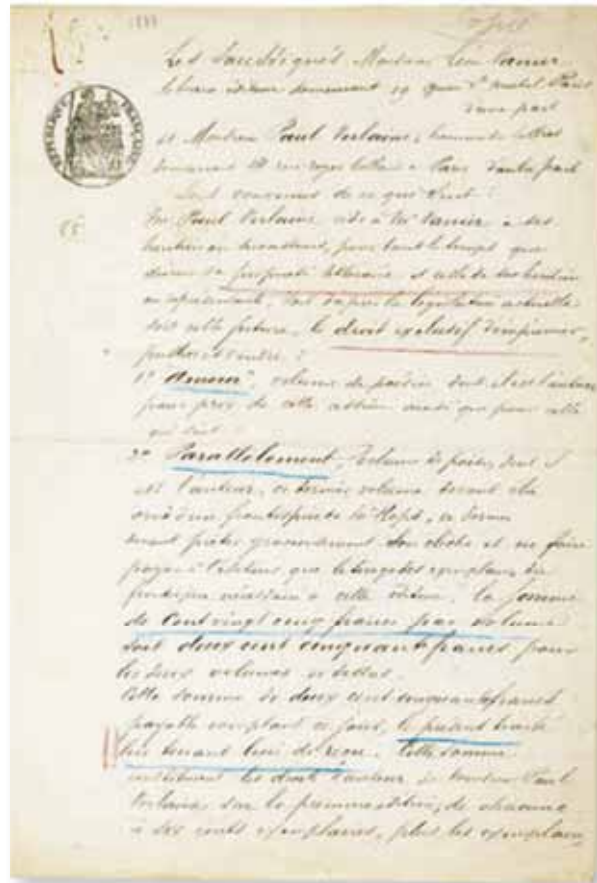 1888
Copie
Les Soussignés Monsieur Léon Vanier
libraire éditeur demeurant 19 quai St Michel Paris
d'une part
et Monsieur Paul Verlaine, homme de lettres
demeurant rue royer Collard à Paris d'autre part
Sont convenus de ce qui suit :
Mr Paul Verlaine cède à Mr Vanier à ses
héritiers ou successeurs, pour tout le temps que
durera sa propriété littéraire et celle de ses héritiers
ou représentants, soit d'après la législation actuelle
soit celle future, le droit exclusif d'imprimer,
publier et vendre :
1° Amour, volume de poésies dont il est l'auteur
pour prix de cette cession ainsi que pour celle
qui suit
2° Parallèlement, volume de poésies, dont il
est l'auteur, ce dernier volume devant être
orné d'un frontispice de Rops, ce dernier
devant prêter gracieusement son cliché et ne faire
payer à l'éditeur que le tirage des exemplaires du
frontispice nécessaire à cette édition, la somme
de Cent vingt cinq francs par volume
soit deux cent cinquante francs pour
les deux volumes
Cette somme de deux cent cinquante francs
payable comptant ce jour, le présent traité
lui tenant lieu de reçu. Cette somme
constituant les droits d'auteur de Monsieur Paul
Verlaine sur la première édition, de chacune
à six cents exemplaires, plus les exemplaires
REPUBLIQUE FRANÇAISE